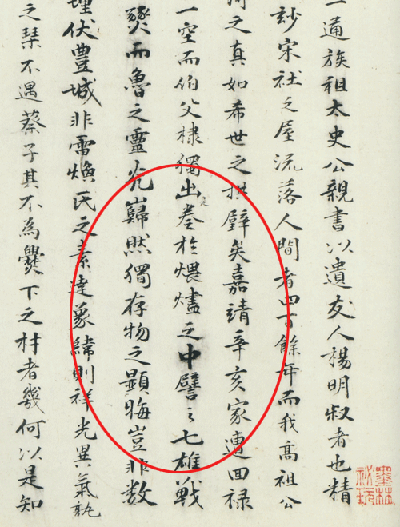 一通族祖太史公親書以遺友人楊明叔者也精
妙宋社之屋流落人間者四百餘年而我高祖公
之真如希世之拱璧矣嘉靖辛亥家遭回祿
一空而伯父棣獨出卷於煨燼之中譬之七雄戰
燹而魯之靈光巋然獨存物之顯晦豈非數
埋伏豐城非雷煥氏之素達象緯則祥光異氣孰
之琴不遇蔡子其不為爨下之材者幾何以是知